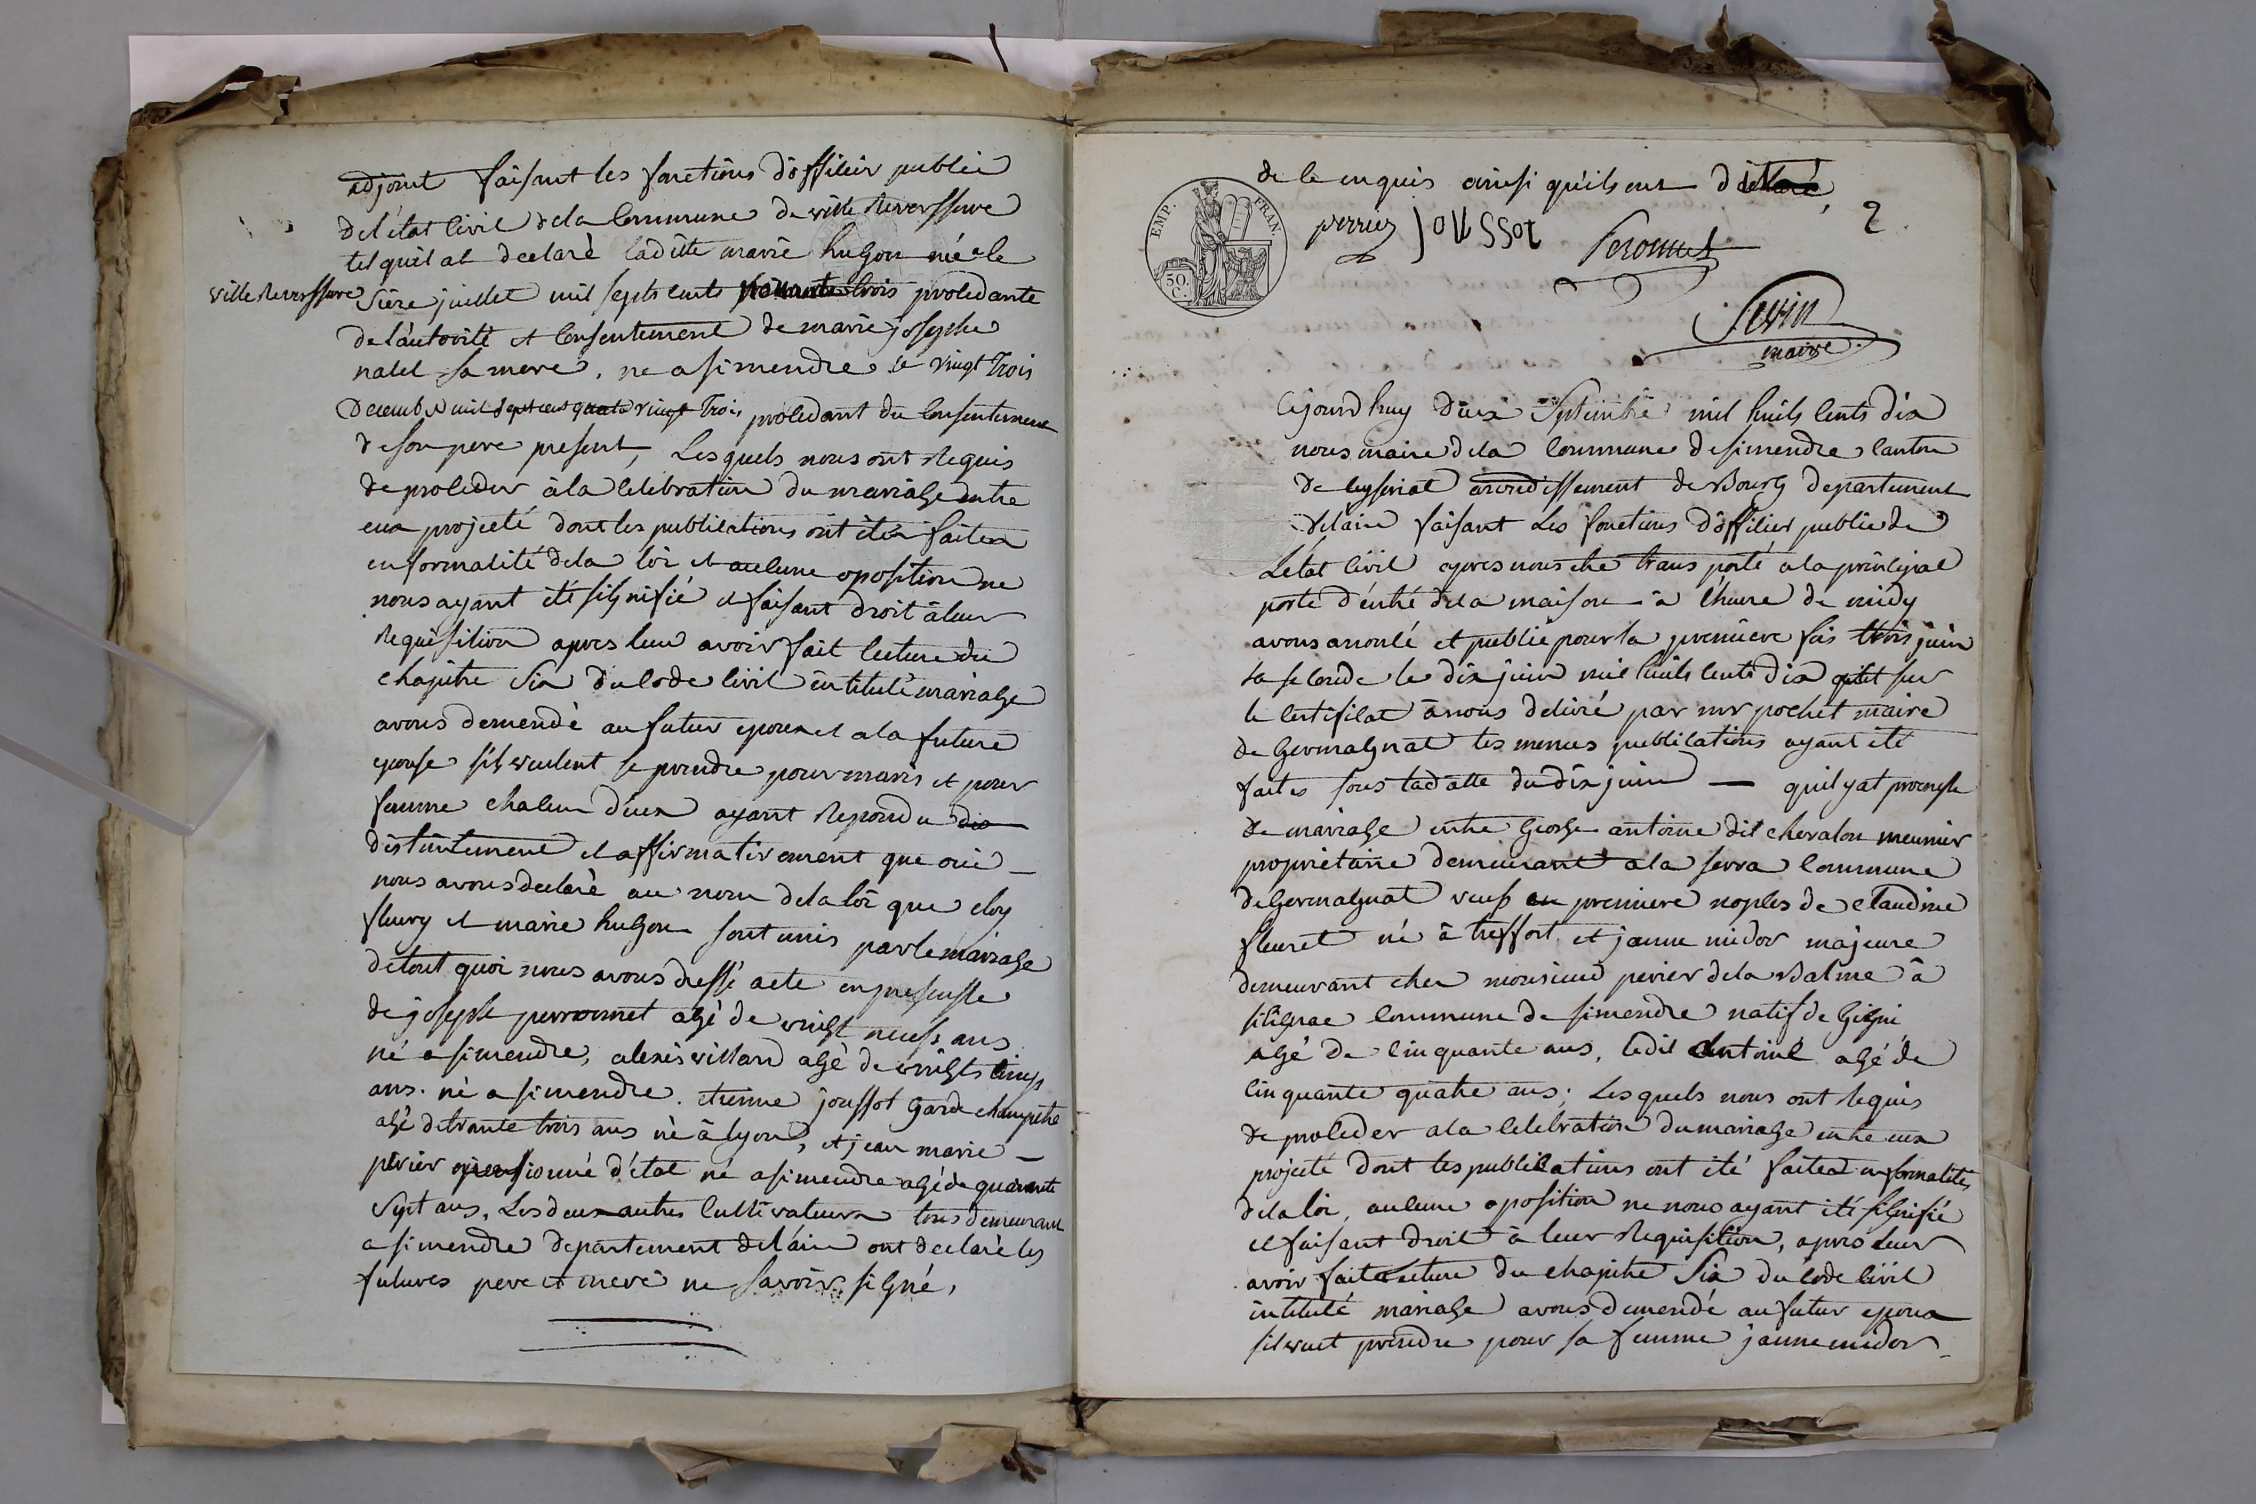 adjoint faisant les fonctions d'offilier publie
de l'état Civil dela Commune de ville Reverssure
tel quil at declaré laditte marie hugon née le
ville Reverssure
Siere juillet mil septs cents trois proledante
de l'autorité et Consentement de marie josephe
natel sa mere, ne a simendre le vingt Trois
Decemb mil sept cent quatre vingt Trois proledant du Consentement
de son pere present, Lesquels nous ont Requis
de proleder à la Celebration du mariage entre
eux projeté dont les publications ont étés faites
en formalité dela loi et aulune oposition ne
nous ayant été signifié et faisant droit à leur
Requisition apres leur avoir fait lecture du
chapitre Six du Code Civil intitulé mariage
avous demendé au futur epoux et a la future
epouse s'il veulent se prendre pour maris et pour
femme chalun d'eux ayant Repondu dis
distintement et affirmativement que oui
nous avons declaré au nom dela loi que eloy
fleury et marie hugon sont unis par le mariage
de tout quoi nous avons dressé acte en presensse
de joseph perronnet agé de vingt neufs ans
né a simendre, alexis villard agé de vingts cinqs
ans. né a simendre. etienne joussot Garde champetre
agé de trante trois ans né à lyon, et jean marie
périer pensionné d'état né a simendre agé de quarante
Sept ans, Les deux autres Cultivateurs tous demeurant
a simendre departement de l'ain ont declaré les
futures pere et mere ne Savoir signé,
de le enquis ainsi qu'ils ont declaré,
2
EMP. FRAN.
50. C.
perrier JOUSSOT Peronnet
Sevin
maire
Cejourd huy Deux Septembre mil huits Cents dix
nous maire dela Commune de simendre Canton
de Ceyseriat arondissement de Bourg Departement
de l'ain faisant Les fonctions d'offilier publie de
L'état Civil apres nous etre transporté a la prinlipal
porte d'entré dela maison à l'heure de midy
avons anonlé et publié pour la premiere fois trois juin
la selonde le dix juin mil huits Cents dix et sur
le Certifilat à nous deliuré par mr pochet maire
de Germagnat les memes publilations ayant été
faites sous la datte du dix juin — quil y at promesse
de mariage entre George antoine dit chevalon meunier
proprietaire demeurant a la serra Commune
de Germagnat veuf en premiere noples de Claudine
fleuret né à treffort et janne midor majeure
demeurant chez monsieur perier dela Balme à
silignac Commune de simendre natif de Gigni
agé de Cinquante ans, ledit Antoine agé de
Cinquante quatre ans; Lesquels nous ont Requis
de proleder a la Celebration du mariage entre eux
projeté dont les publications ont été faites en formalités
dela loi, aulune oposition ne nous ayant été signifié
et faisant droit à leur Requisition, apres Leur
avoir fait Lecture du chapitre Six du Code Civil
intitulé mariage avous demendé au futur epoux
s'il veut prendre pour sa femme janne midor